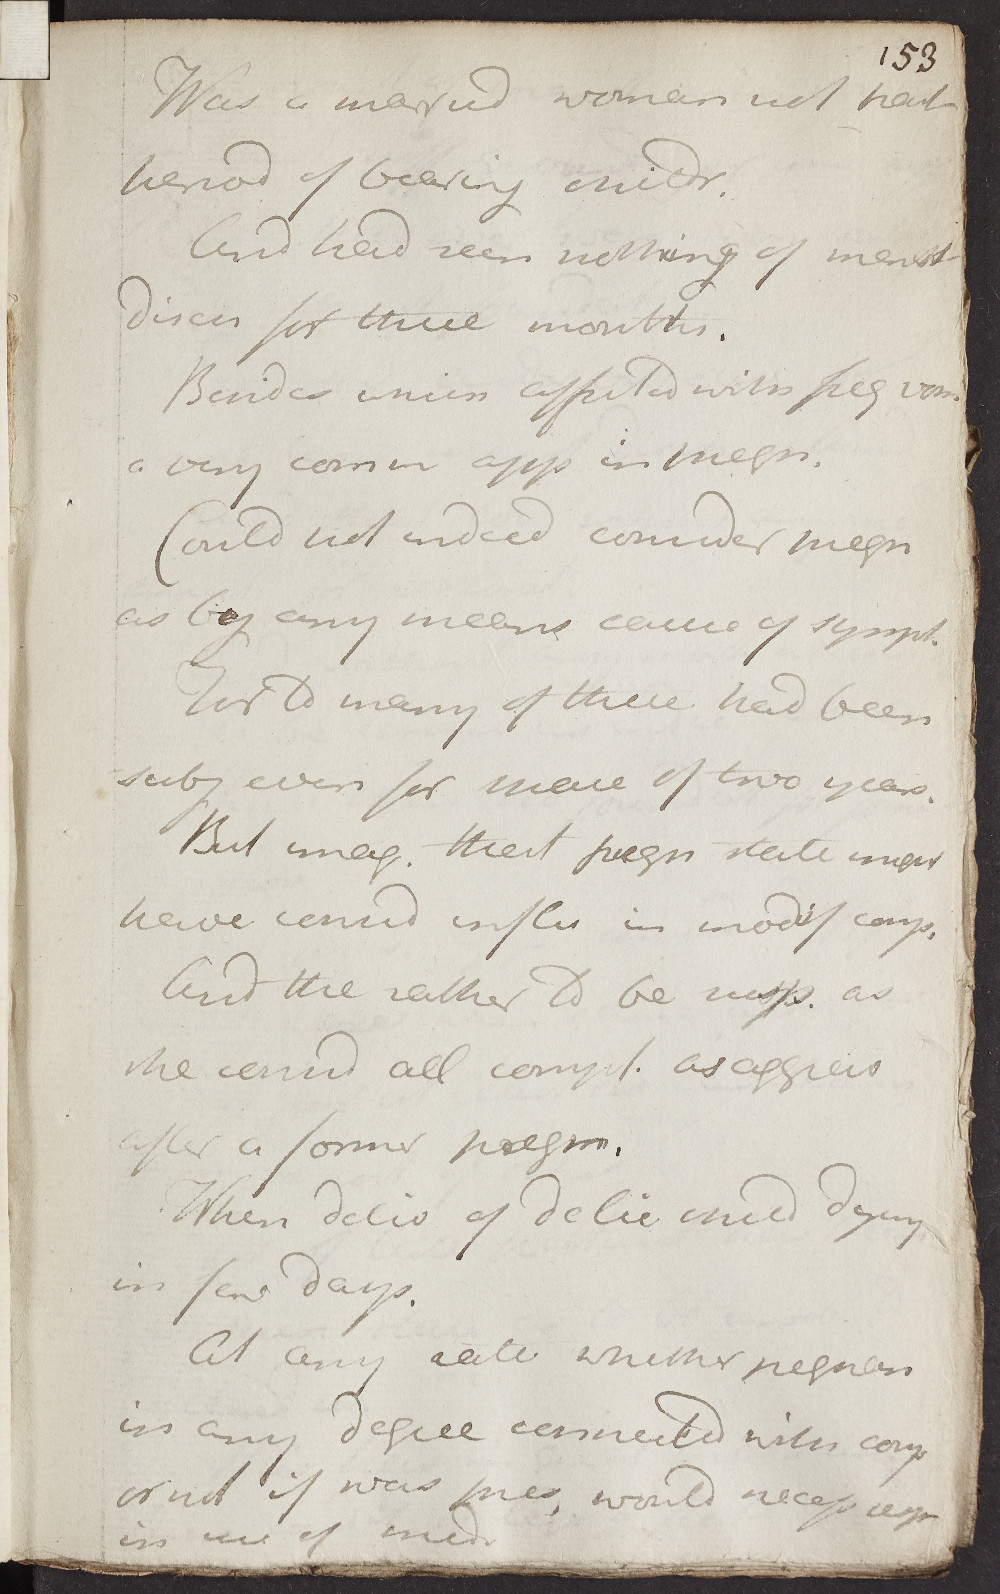 153
Was a married woman not past
period of bearing childr.
And had seen nothing of menst
disch for three months.
Besides when affected with freq vom
a very comm app in pregn.
Could not indeed consider pregn
as by any means cause of sympt.
For to many of these had been
subj even for more of two years.
But imag. that pregn state might
have consid influ in modif comp.
And the rather to be susp. as
she consid all compl. as aggrav
after a former pregn.
When deliv of delic child dying
in few days.
At any rate whether pregnan
in any degree connected with comp
or not if was pres, would necess requ
in use of medi